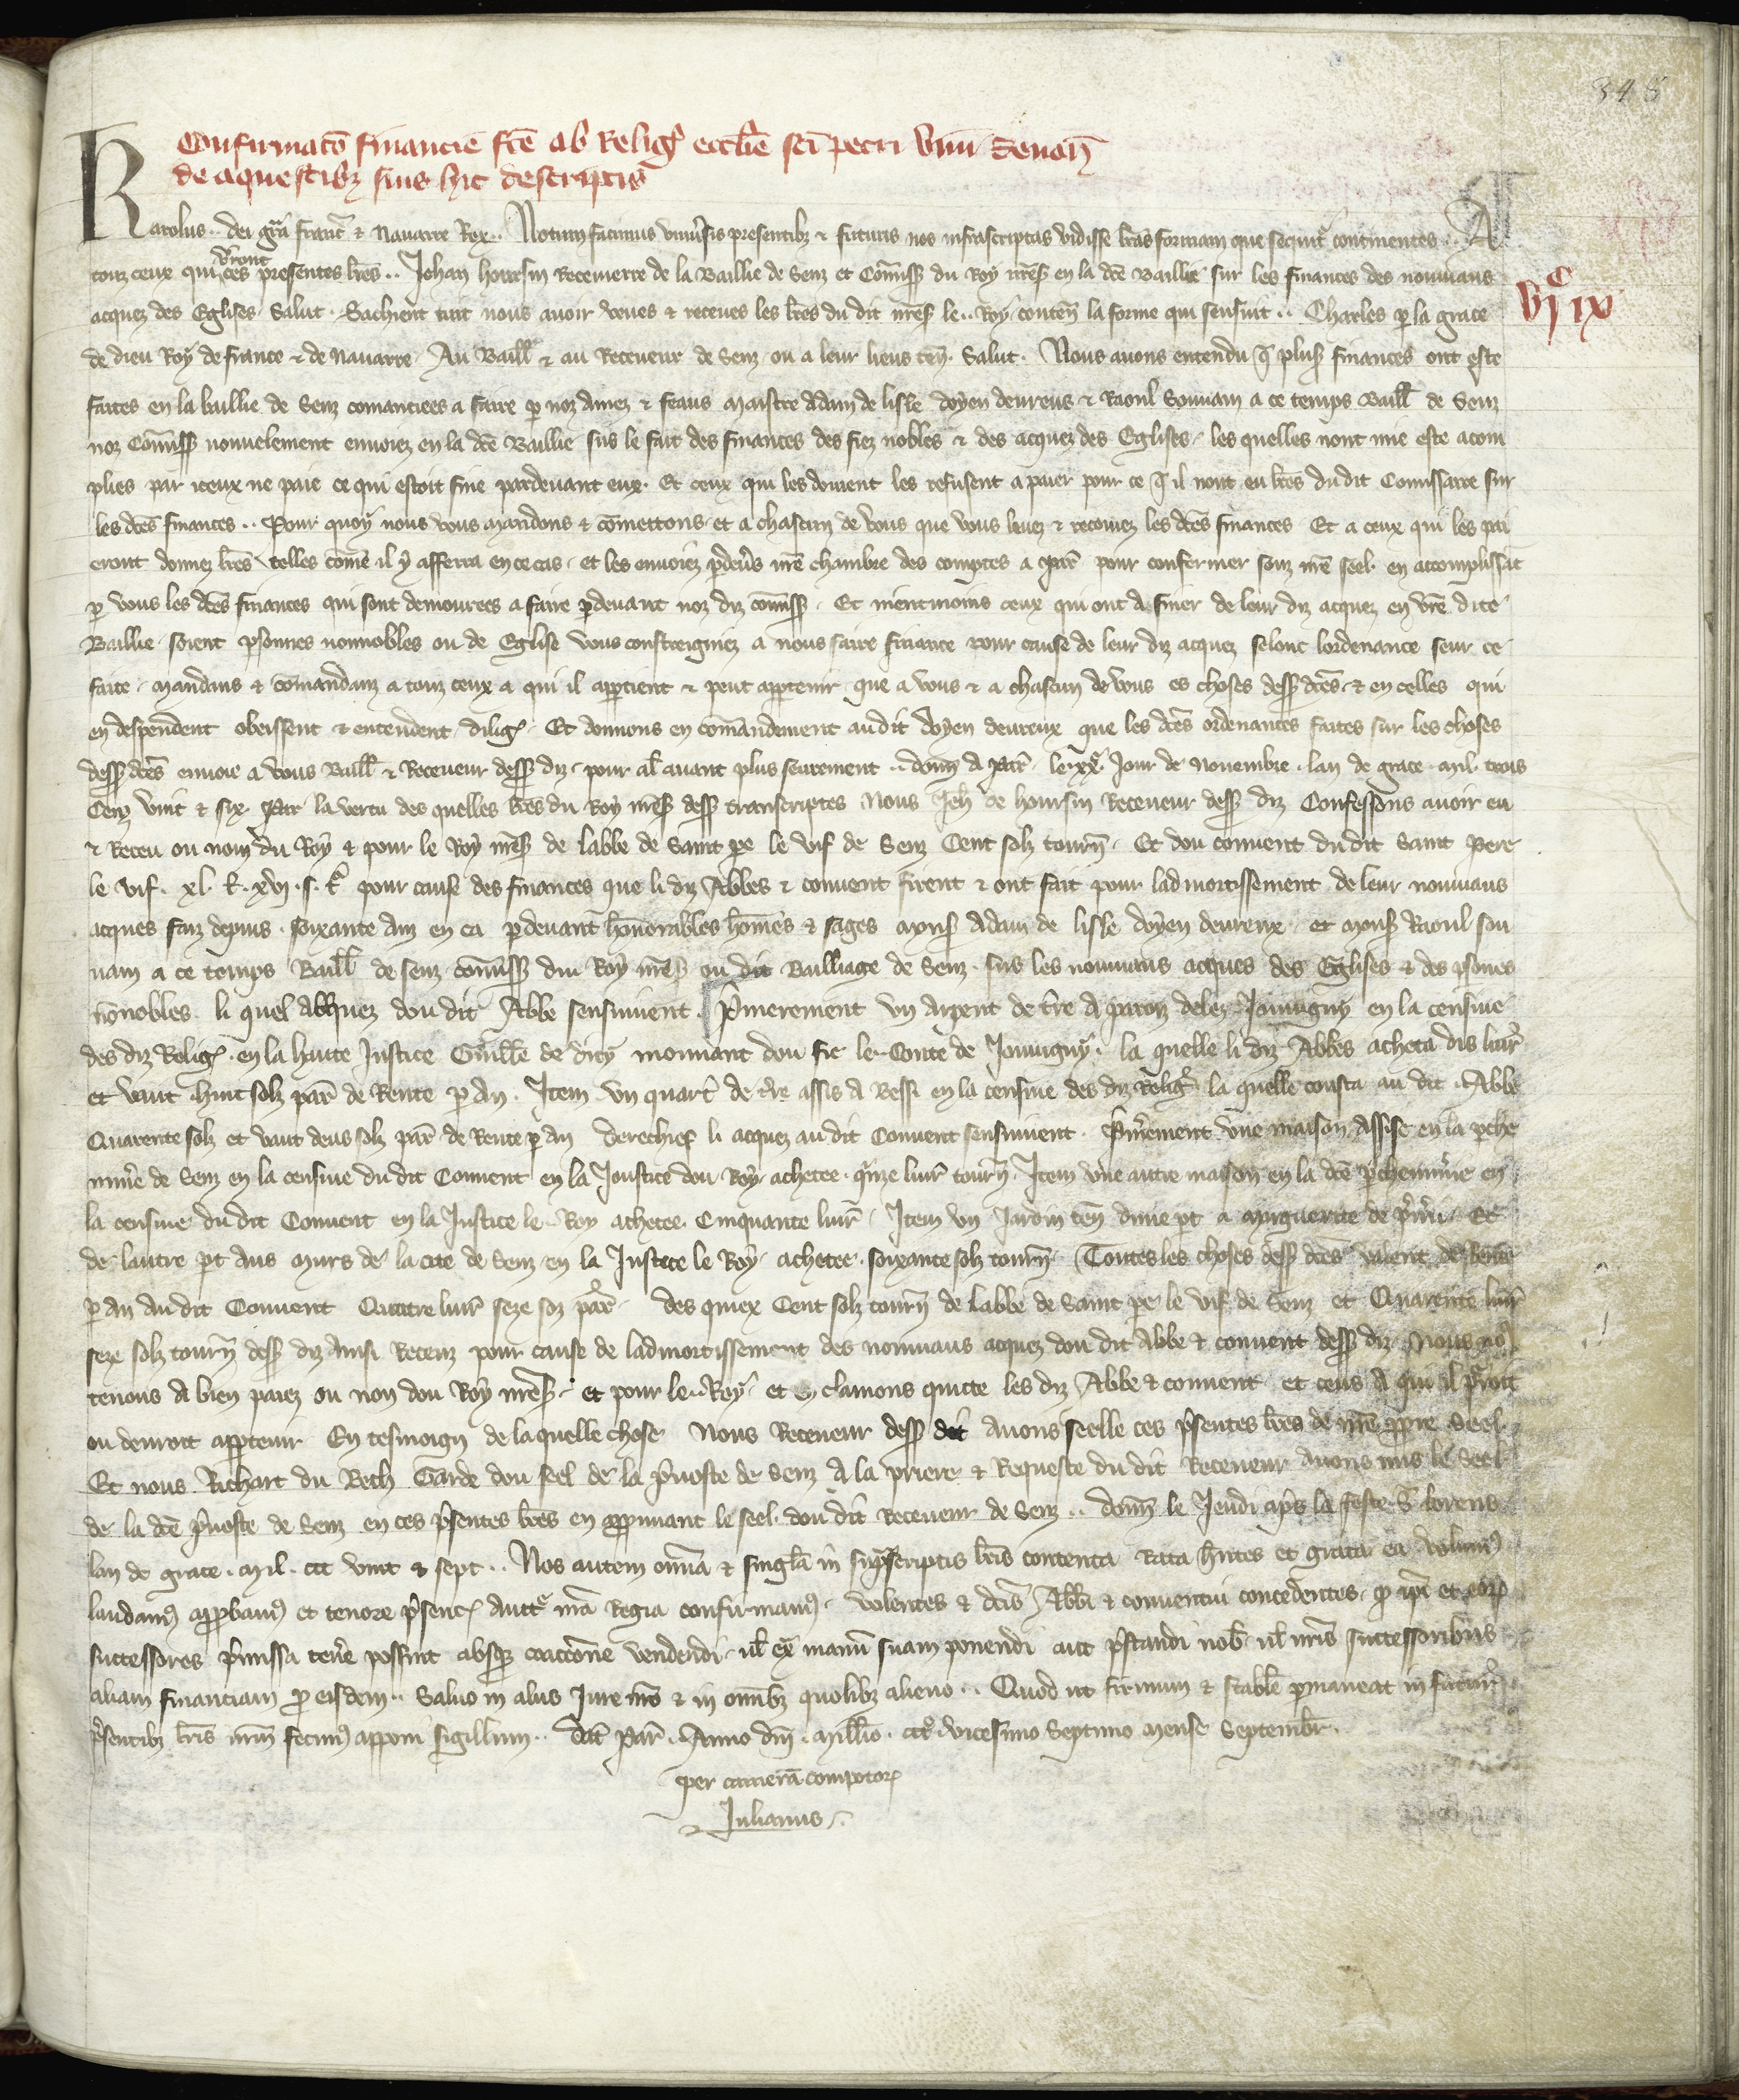 348
Confirmatō financie fcē ab Relig eccłie sci petri vivi Senoñ
de aquestibz suis hic descriptis
Karolus .. dei gra Franc & Navarre Rex .. Notum facimus universis presentibz & futuris nos infrascriptas vidisse lras formam que sequit continentes .. A
touz ceux qui verront ces presentes lres .. Jehan hourssin Receveur de la Baillie de Senz et Comiss du Roy nreS en la dce Baillie sur les finances des nouviaus
vjC ix
acquez des Eglises Salut . Sachient tuit nous avoir veues & receues les lres du dit nreS le .. Roy conteñ la forme qui sensuit .. Charles p la grace
de dieu Roy de france & de Navarre . Au Baill & au Receveur de Senz ou a leur lieus teñ . Salut . Nous avons entendu q plus finances ont este
faites en la baillie de Senz comanciees a faire p noz amez & feaus maistre Adam de lisle doyen devreus & Raoul Souvain a ce temps Baill de Senz
noz Comiss nouvelement envoiez en la dce Baillie sus le fait des finances des fiez nobles & des acquez des Eglises . les quelles nont mie este acom
plies par iceux ne paie ce qui estoit fine pardevant eux . Et ceux qui les doivent les refusent a paier pour ce q il nont eu lres du dit Comissaire sur
les dces finances .. Pour quoy nous vous mandons & comettons et a chascun de vous que vous levez & recevez les dces finances Et a ceux qui les pai
eront donnez lres telles come il y afferra en ce cas . et les envoiez pdevs nre chambre des comptes a Par pour confermer souz nre seel . en accomplissāt
p vous les dces finances qui sont demourees a faire pdevant noz diz comiss . Et nientmoins ceux qui ont a finer de leur diz acquez en vre dite
Baillie . soient psonnes nonnobles ou de Eglise vous constreigniez a nous faire finance pour cause de leur diz acquez selonc lordenance seur ce
faite . mandans & comandanz a touz ceux a qui il appartient & peut appartenir que a vous & a chascun de vous es choses dess dces & en celles qui
en despendent obeissent & entendent dilig . Et donnons en comandement au dit doyen devreux que les dces ordenances faites sur les choses
dess dces envoie a vous Baill & Receveur dess diz . pour al avant plus seurement .. donn a Par . le xxe . Jour de novembre . lan de grace . mil . trois
Cenz vint & six . Par la vertu des quelles lres du Roy nreS dess transcriptes Nous Jeh de hourssin Receveur dess diz Confessons avoir eu
& Receu ou nom du Roy & pour le Roy nreS de labbe de Saint pe le vif de Senz Cent solz tourñ . Et dou convent du dit Saint Pere
le vif . xl . l . xvj . s . t pour cause des finances que li diz Abbes & convent firent & ont fait pour ladmortissement de leur nouviaus
acques faiz depuis . soixante anz en ca pdevant honnorables homes & sages mons Adam de lisle doyen devreux . et mons Raoul sou
vain a ce temps Baill de senz comiss du Roy nreS ou dit Bailliage de Senz . sus les nouviaus acques des Eglises & des psones
nonobles . li quel acquez dou dit Abbe sensuivent . Primerement un Arpent de tre a Paroy delez Jouvigny en la censive
des diz Relig . en la haute Justice Guille de dicy mouvant dou fie le .. Conte de Jouvigny . la quelle li diz Abbes acheta dis livr
et vaut huit solz par de Rente p an . Item un quart de tre assis a Bessi en la censive des diz Relig . la quelle cousta au dit Abbe
Quarente solz et vaut deus solz par de Rente p an derechief li acquez au dit Convent sensuivent . Primerement une maison Assise en la pche
minie de Senz en la censive du dit Convent en la Joustice dou Roy . achetee . qinze livr tourñ . Item une autre maison en la dce pcheminie en
la censive du dit Convent en la Justice le .. Roy achetee . Cinquante livr . Item un Jardin teñ dune pt a Marguerite de . Et
de lautre pt aus murs de la cite de Senz en la Justice le Roy . achetee . soixante solz tourñ . Toutes les choses dess dces valent de Rente
p an au dit Convent Quatre livr seze soz par . des quiex Cent solz tourñ de labbe de Saint pe le vif de Senz et Quarente livr
seze solz tourñ dess diz ainsi Receuz pour cause de ladmortissement des nouviaus acquez dou dit Abbe & convent dess diz . Nous nos
tenons a bien paiez ou non dou Roy nreS . et pour le .. Roy . et en clamons quicte les diz Abbe & convent et ceus a qui il pourroit
ou devroit apptenir En tesmoign de laquelle chose Nous Receveur dess dit avons seelle ces psentes lres de nre ppre Seel
Et nous Richart du Bech Garde dou seel de la pvoste de Senz A la priere & Requeste du dit Receveur avons mis le Seel
de la dce pvoste de Senz en ces psentes lres en approuvant le seel dou dit Receveur de Senz .. donn le Jeudi aps la feste S lorens
lan de grace . mil . ccc vint & sept .. Nos autem omnia & singla in suprascriptis lris contenta Rata hntes et grata ea volum
laudam approbam et tenore psenc auctte nra Regia confirmam . volentes & dcis Abbi & conventui concedentes . q ipi et eor
successores pmissa tenere possint absqz coaccione vendendi . ul ex manū suam ponendi aut pstandi nob ul nris successoribus
aliam financiam p eisdem .. Salvo in aliis Jure nro & in omibz quolibz alieno .. Quod ut firmum & stable pmaneat in futur
psentibz lris nrm fecim apponi sigillum .. Dat Par . Anno dni . millio . ccco . vicesimo Septimo mense Septembr .
per camerā compotor
Julianus